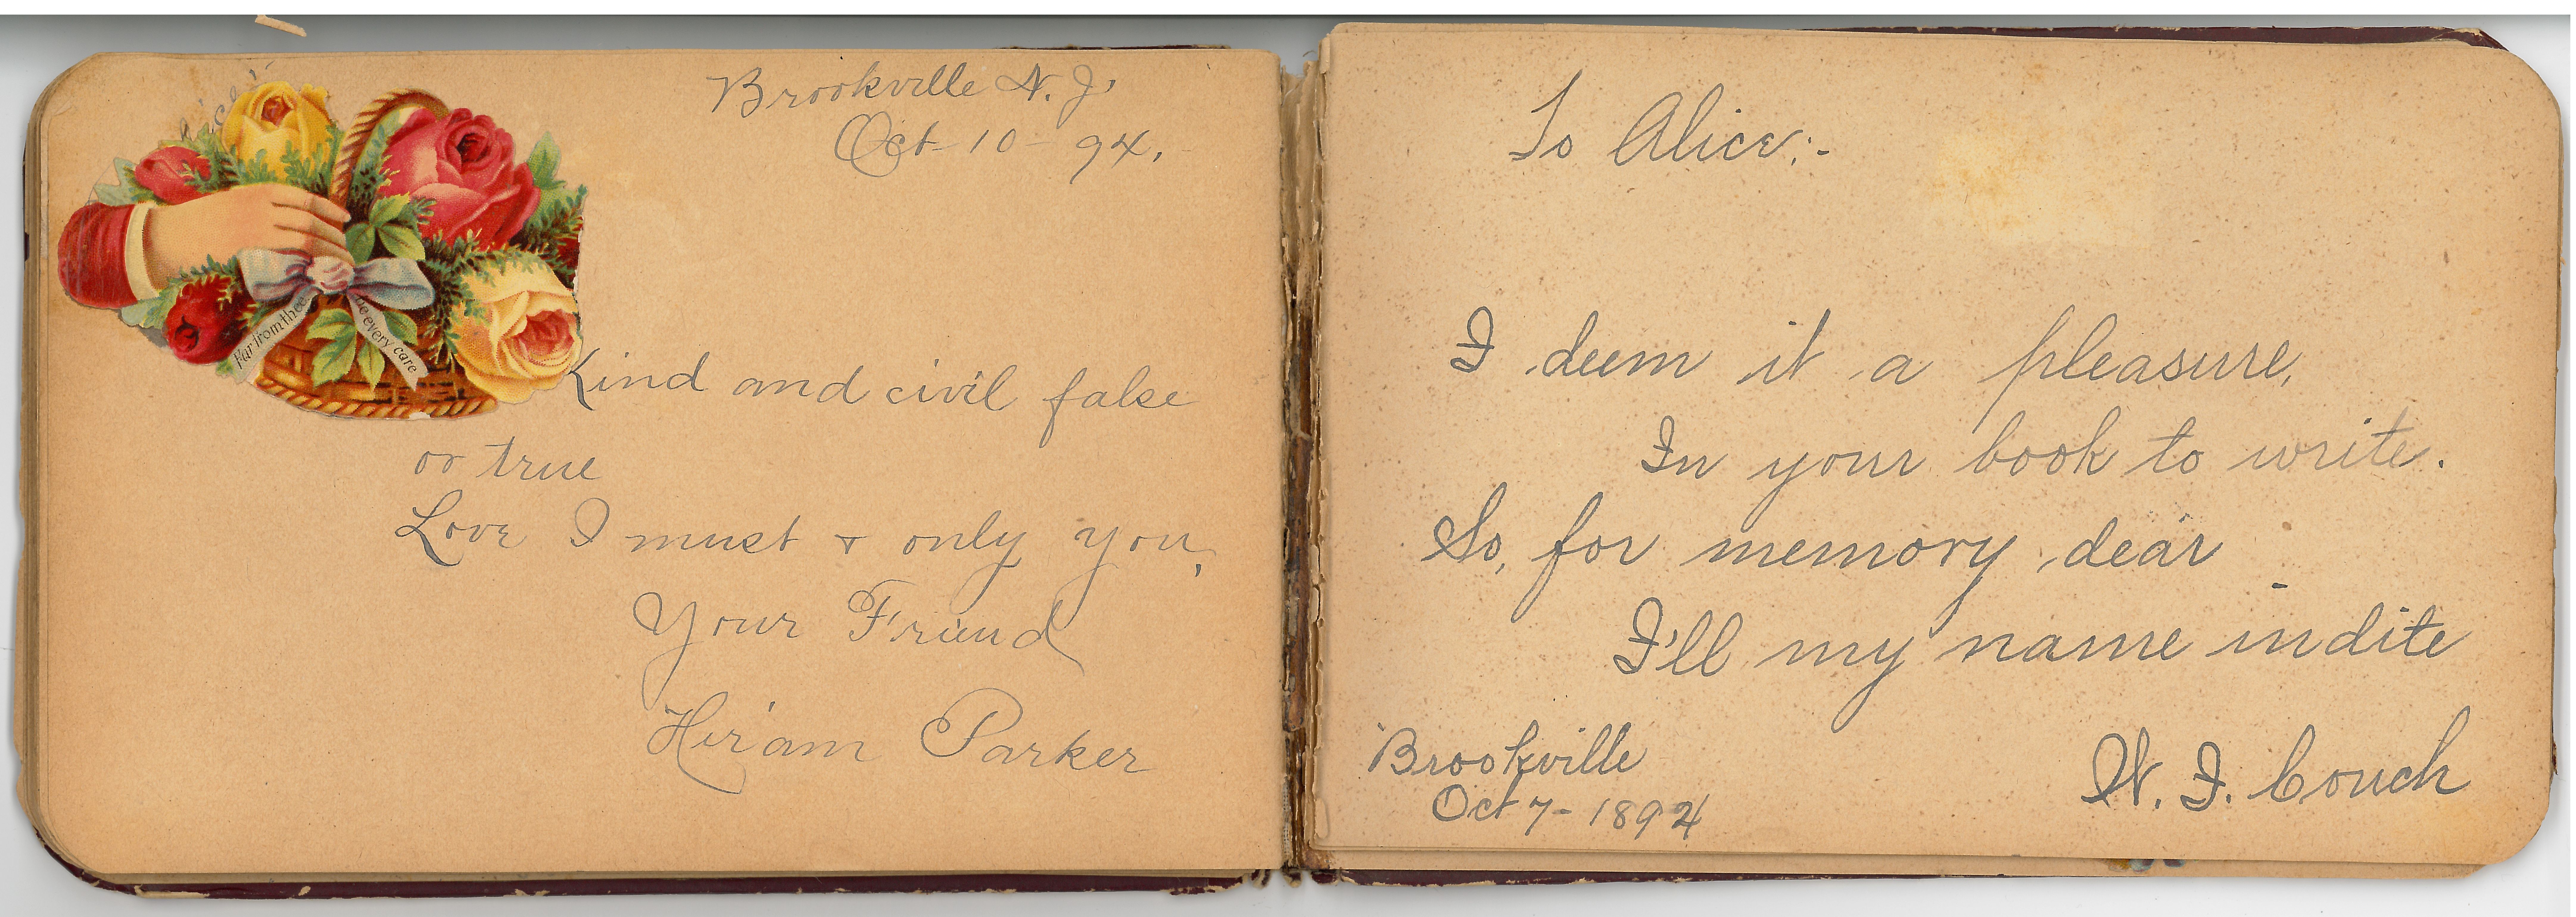 Brookville N. J.
Oct - 10 - 94.
Far from thee
be every care
Kind and civil false
or true
Love I must & only you,
Your Friend
Hiram Parker
To Alice:-
I deem it a pleasure,
In your book to write.
So, for memory dear
I'll my name indite
Brookville
Oct 7 - 1894
W. I. Couch